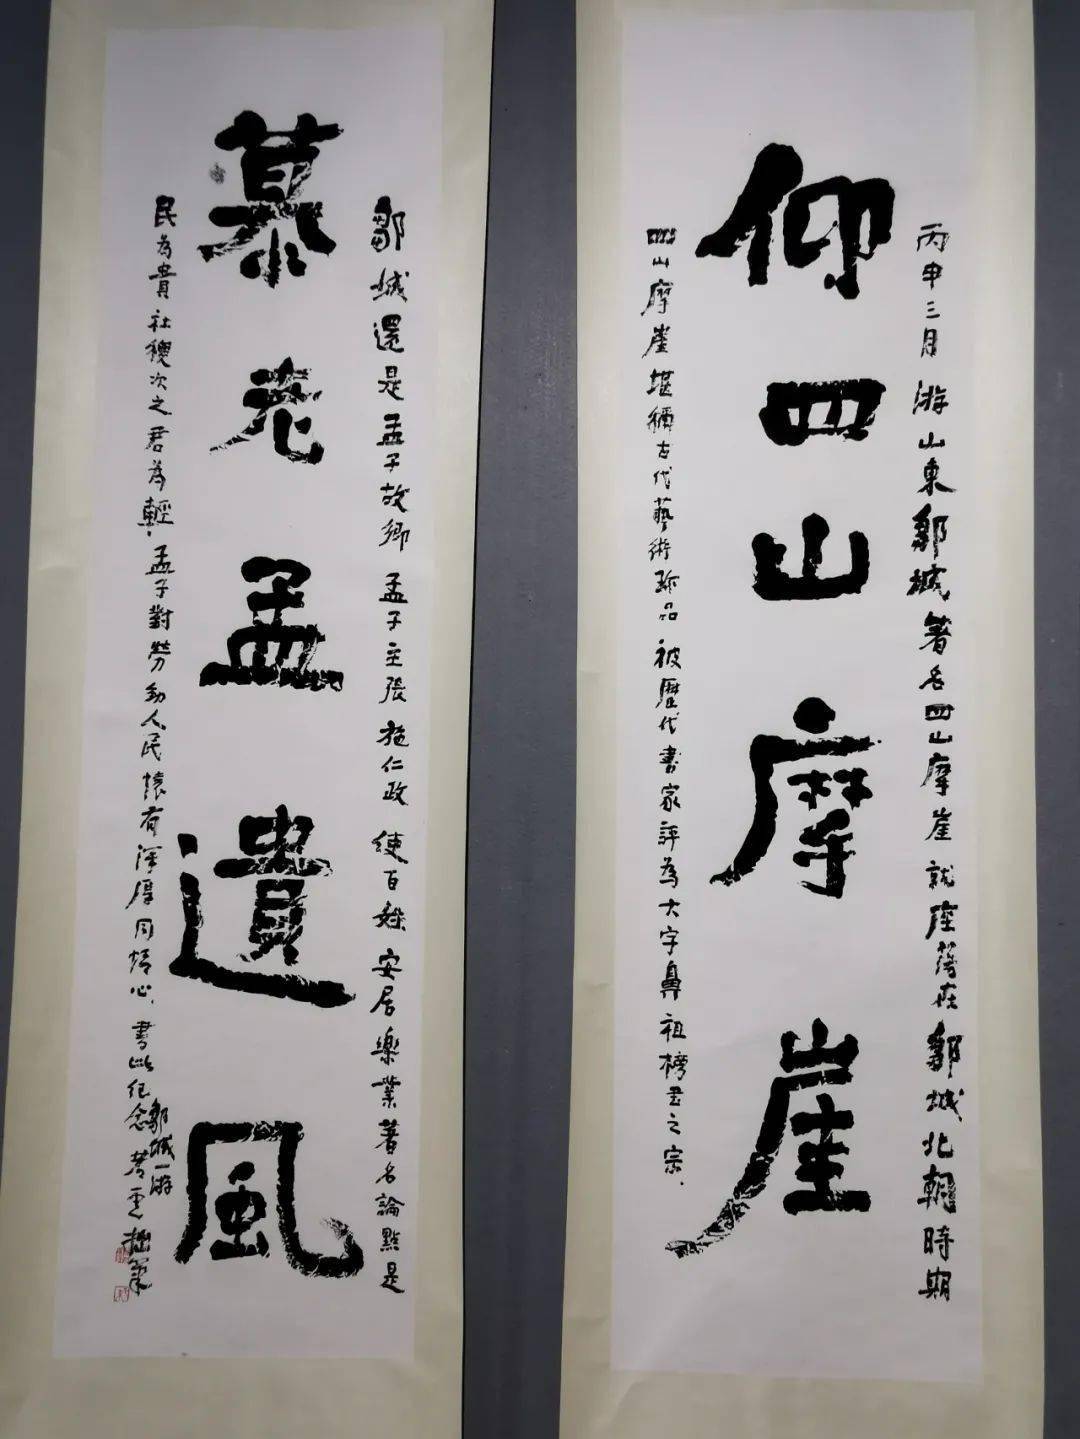 丙申三月 游山東鄒城著名四山摩崖 就座落在鄒城北朝時期
仰四山摩崖
四山摩崖堪稱古代藝術珎品 被歷代書家評為大字鼻祖榜书之宗.
鄒城還是孟子故鄉 孟子主張施仁政 使百姓安居樂業著名論點是
慕老孟遺風
民為貴社稷次之君為輕.孟子對勞动人民懷有深厚同情心.書此纪念
鄒城一游
拙筆